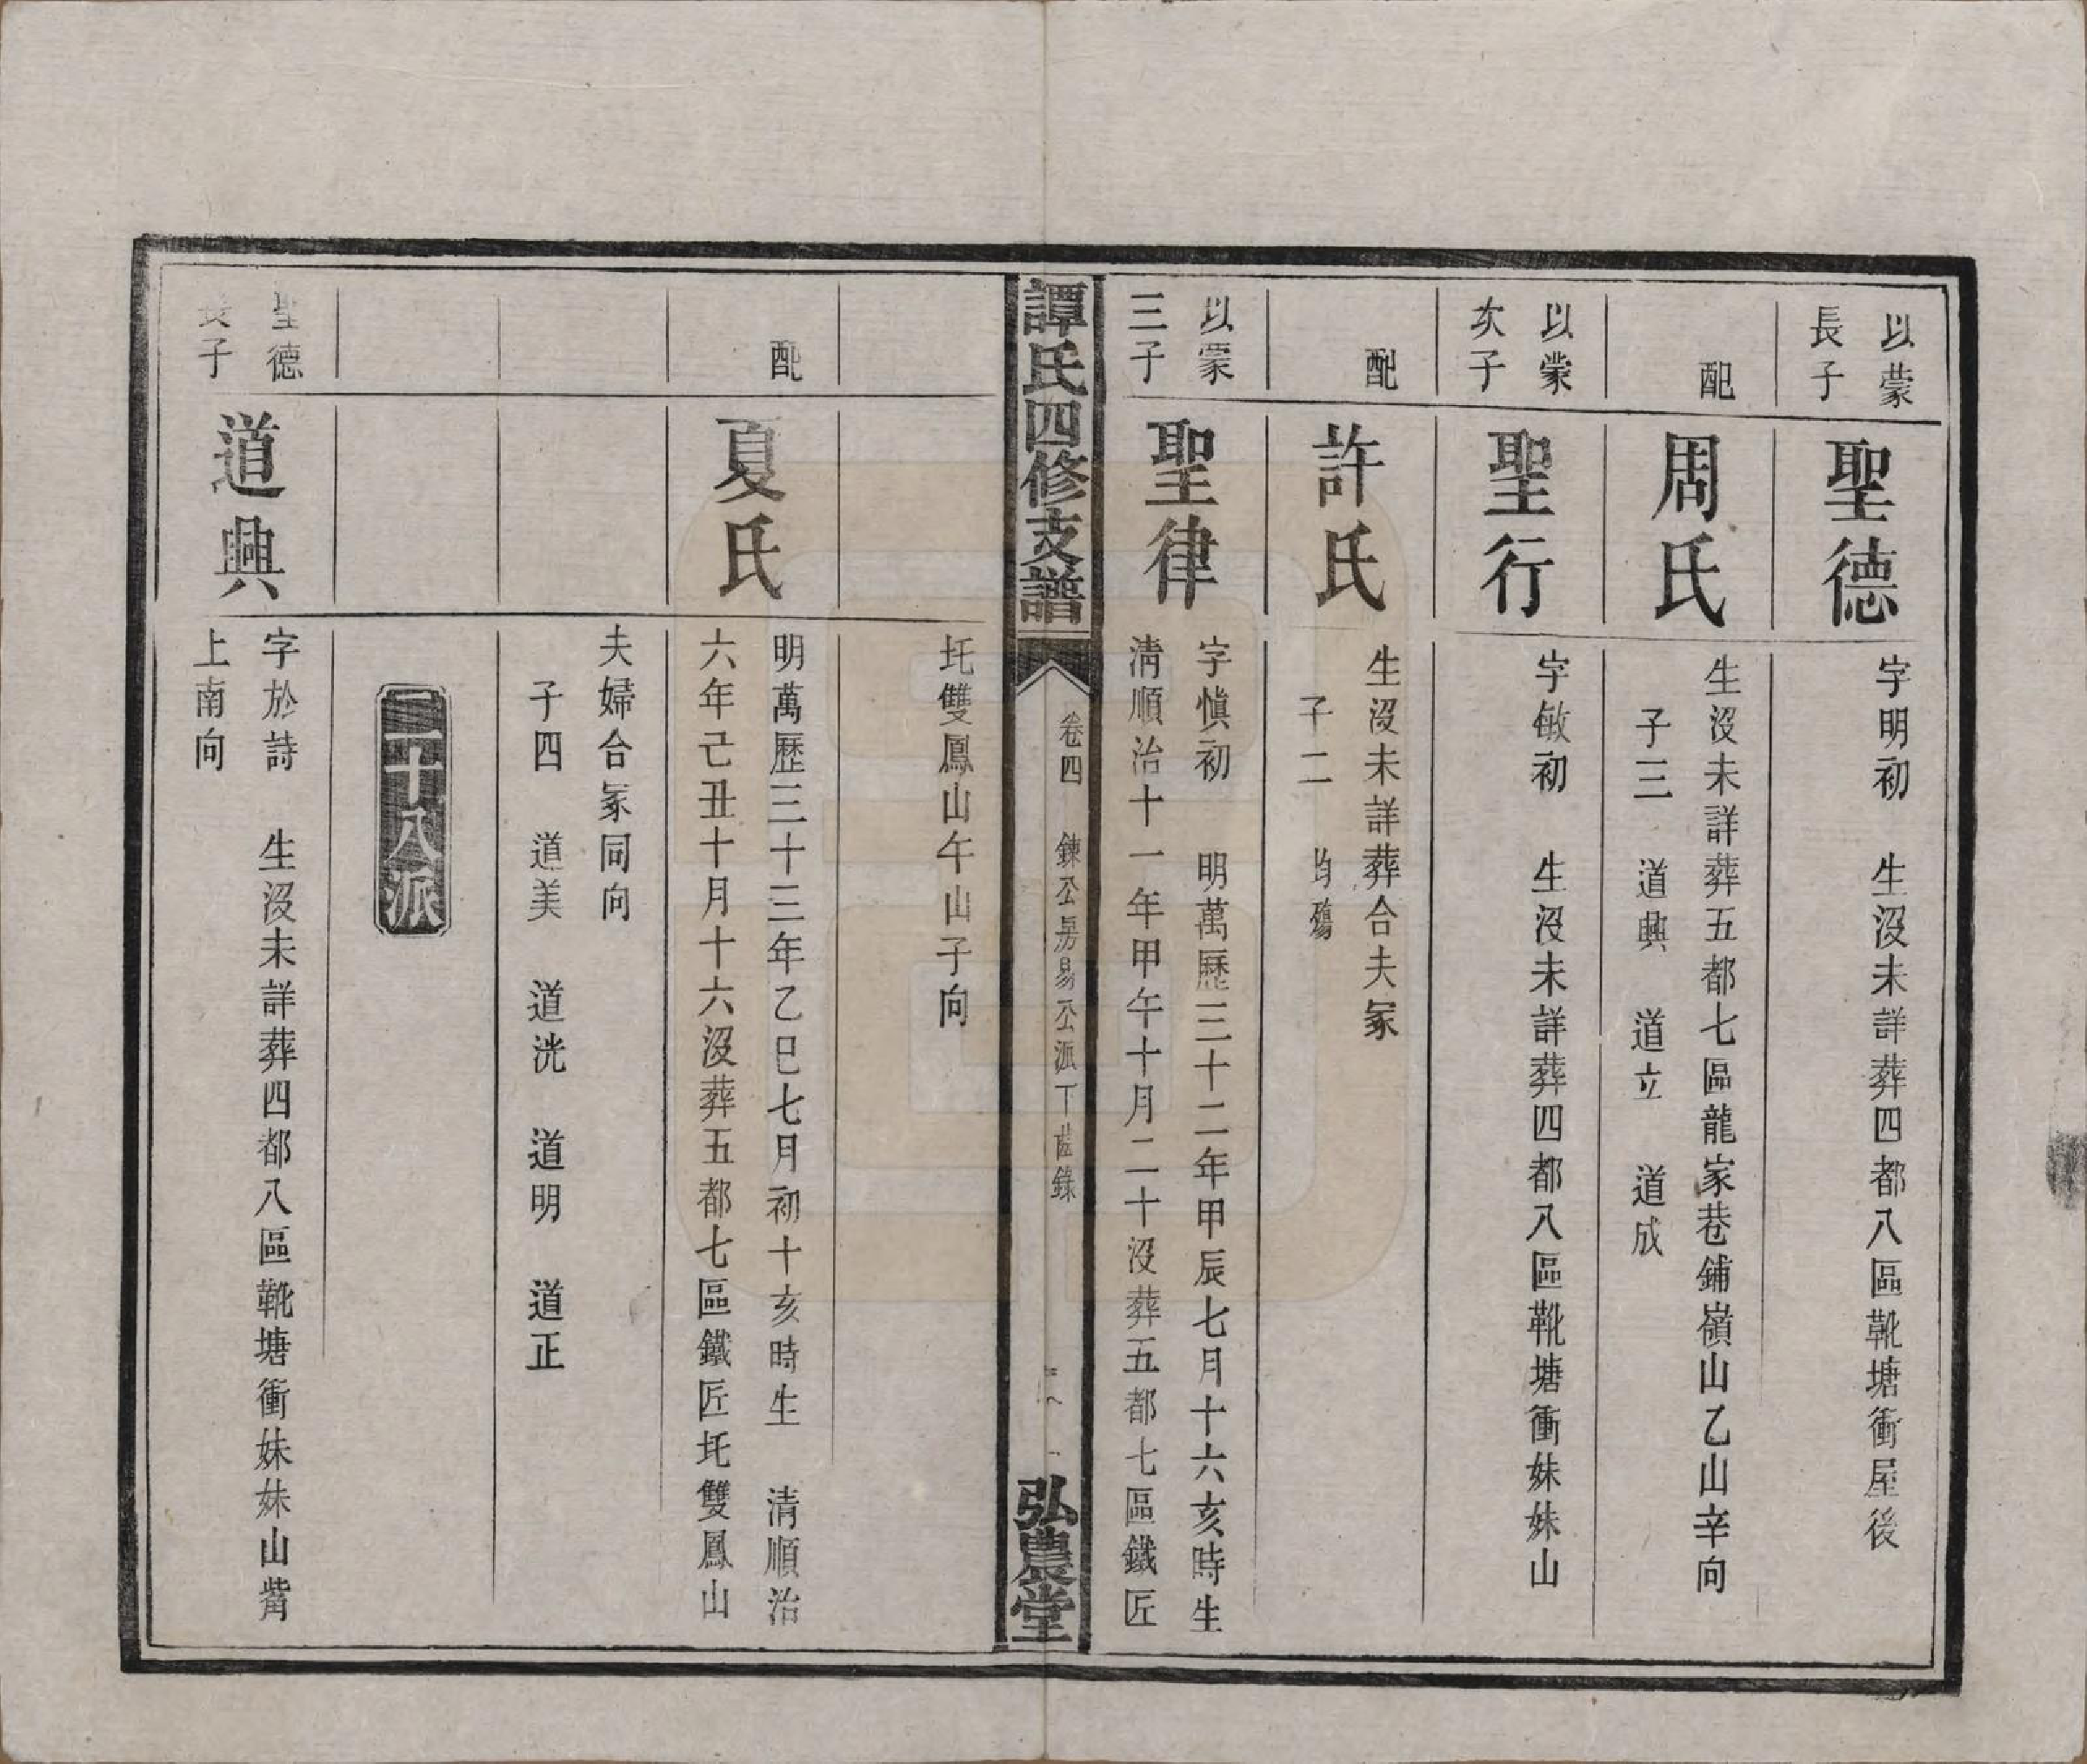 以蒙
長子
聖德
字明初　生沒未詳葬四都八區靴塘衝屋後
配
周氏
生沒未詳葬五都七區龍家巷鋪嶺山乙山辛向
子三　道興　道立　道成
以蒙
次子
聖行
字敏初　生沒未詳葬四都八區靴塘衝妹妹山
配
許氏
生沒未詳葬合夫冢
子二　均殤
以蒙
三子
聖律
字愼初　明萬歷三十二年甲辰七月十六亥時生
淸順治十一年甲午十月二十沒葬五都七區鐵匠
譚氏四修支譜
卷四　鍊公房易公派下齒錄
弘農堂
圫雙鳳山午山子向
配
夏氏
明萬歷三十三年乙巳七月初十亥時生　清順治
六年己丑十月十六沒葬五都七區鐵匠圫雙鳳山
夫婦合冢同向
子四　道美　道洸　道明　道正
二十八派
聖德
長子
道興
字於詩　生沒未詳葬四都八區靴塘衝妹妹山背
上南向